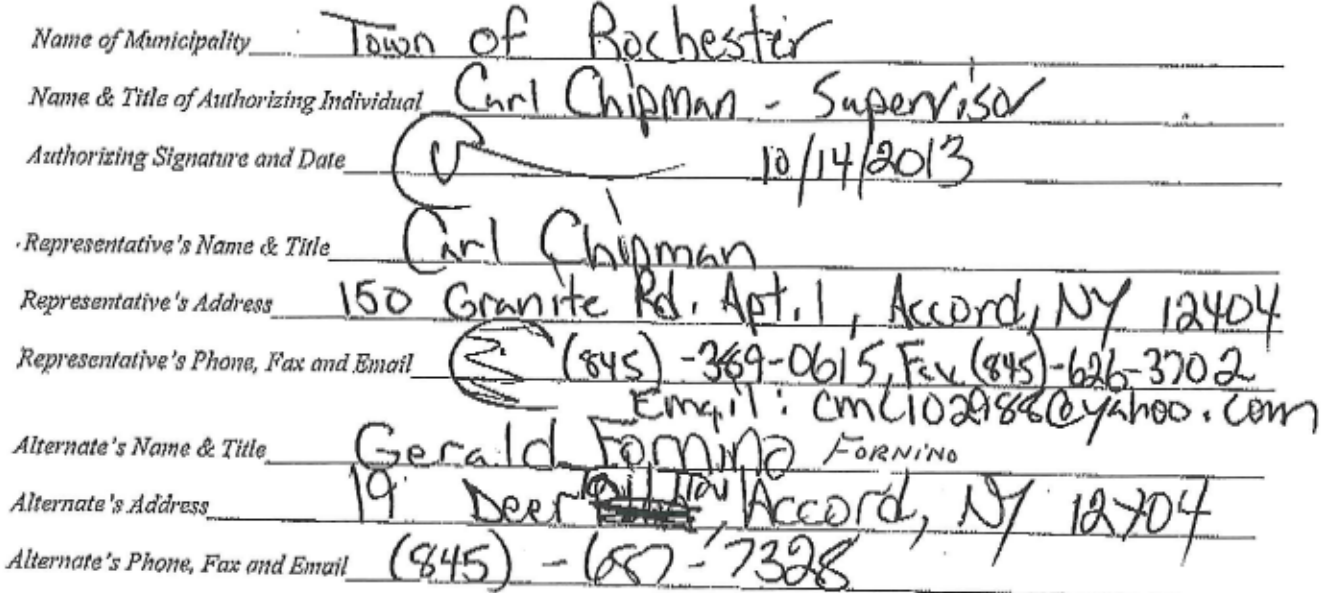 Name of Municipality Town of Rochester
Name & Title of Authorizing Individual Carl Chipman - Supervisor
Authorizing Signature and Date 10/14/2013
Representative's Name & Title Carl Chipman
Representative's Address 150 Granite Rd. Apt. 1, Accord, NY 12404
Representative's Phone, Fax and Email (845)-389-0615, Fax (845)-626-3702
Email: cmc102988@yahoo.com
Alternate's Name & Title Gerald Fornino FORNINO
Alternate's Address 19 Deer Trail, Accord, NY 12404
Alternate's Phone, Fax and Email (845)-687-7328